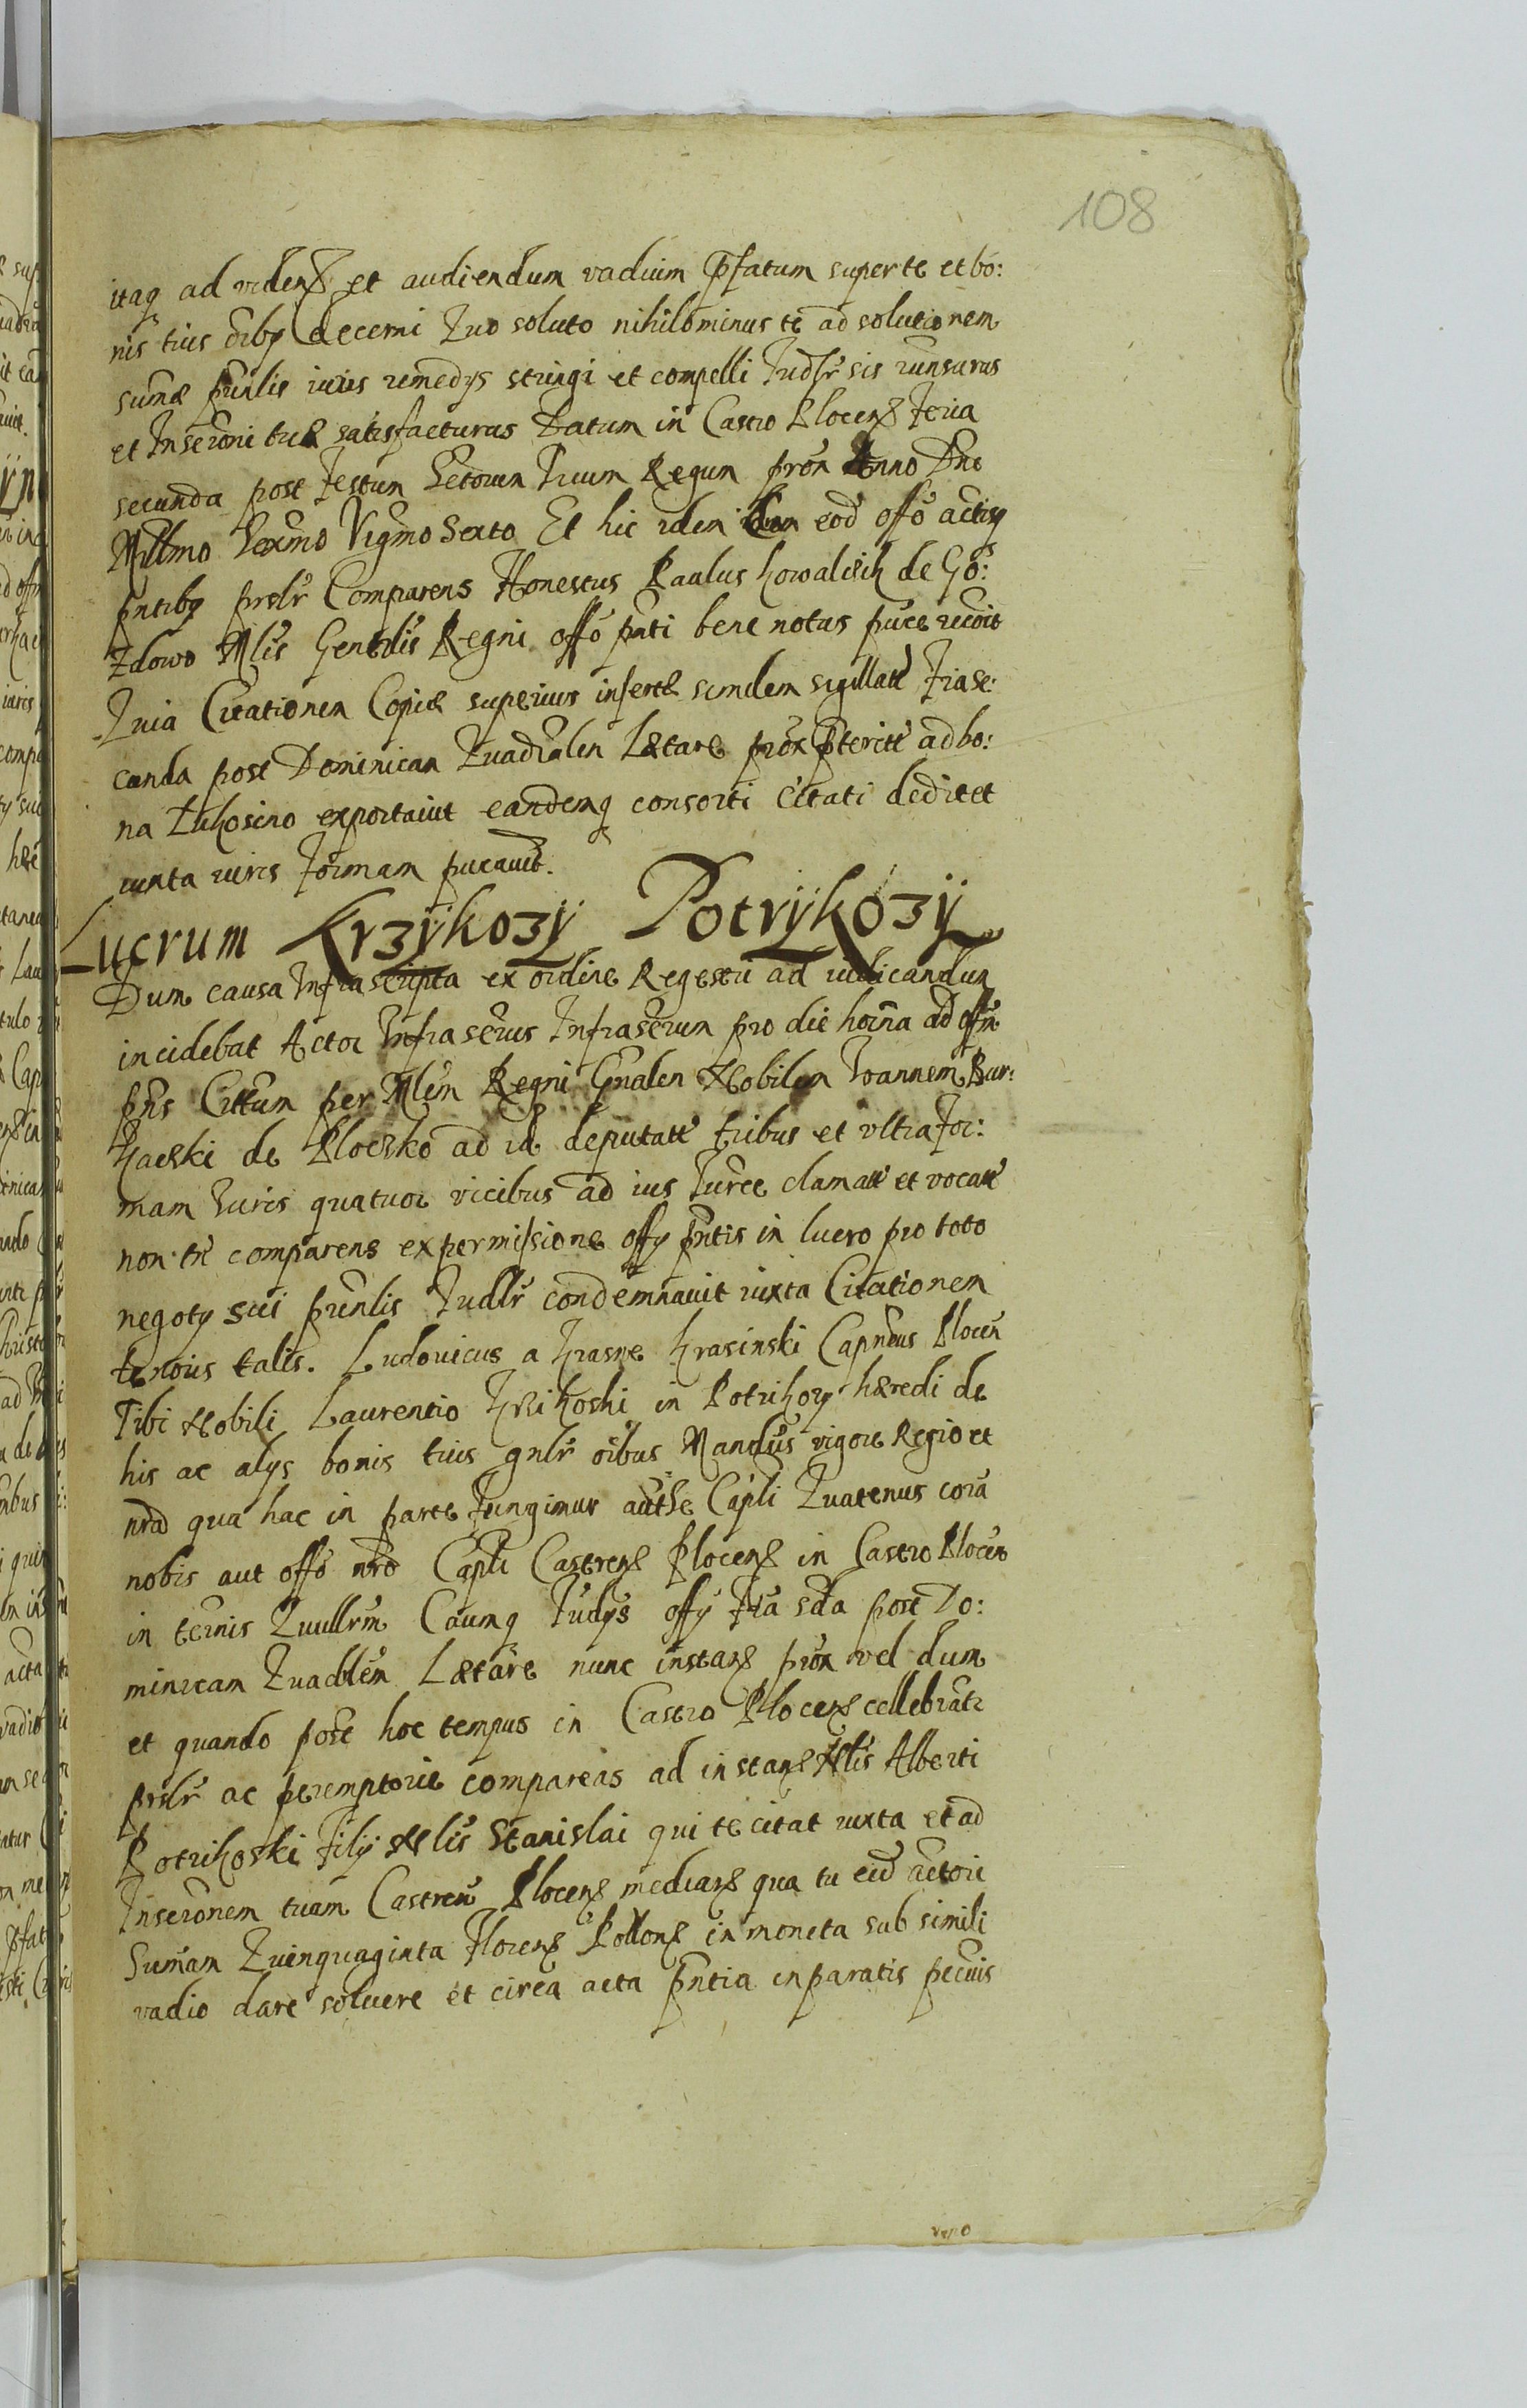 108
itaq ad videns et audiendum vadium pfatum super te et bo:
nis tuis oibq decerni Quo soluto nihilominus te ad solutionem
sumæ punlis iuris remedys stringi et compelli Judlr sis runsurus
et Inscroni tuæ satisfacturus Datum in Castro Plocens Feria
secunda post Festum Sctorum Trium Regum prox Anno Dni
Millmo Sexmo Vigmo Sexto Et hic idem eod offo actisq
pntibq prslr Comparens Honestus Paulus Kowalczik de Go:
zdowo Mlis Genrlis Regni offo pnti bene notus puce recoit
Quia Citationem Copiæ superius insertæ simdem sigillate Fria se:
cunda post Dominicam Quadralem Lætare prox pterite ad bo:
na Lukosino exportauit eandemq consorti Citati dedit et
iuxta iuris Formam pucauit.
Lucrum Krzÿkozÿ Potrÿkozÿ
Dum causa Infrascripta ex ordine Regestri ad iudicandum
incidebat Actor Infrascrus Infrascrum pro die horna ad offm
pns Cittum per Mlem Regni Gnalem Nobilem Joannem Bur:
kacki de Ploczko ad id deputate tribus et vltra For:
mam Iuris quatuor vicibus ad ius Iurce clamate et vocate
non tn comparens ex permissione offy pntis in lucro pro toto
negoty sui punlis Judlr condemnauit iuxta Citationem
tenoris talis. Ludouicus a Krasne Krasinski Capneus Plocen
Tibi Nobili Laurentio Krzikoski in Potrikozy hæredi de
his ac alys bonis tuis gnlr oibus Mandus vigore Regio et
nra qua hac in parte fungimur authe Capli Quatenus cora
nobis aut offo nro Capli Castrens Plocens in Castro Plocen
in ternis Quullrm Caumq Judys offy Fria sda post Do:
minicam Quadlem Lætare nunc instans prox vel dum
et quando post hoc tempus in Castro Plocens cellebrati
prslr ac peremptorie compareas ad instans Nlis Alberti
Potrikoski Filÿ Nlis Stanislai qui te citat iuxta et ad
Inscronem tuam Castren Plocens medians qua tu eid actori
Sumam Quinquaginta Florens Pollons in moneta sub simili
vadio dare soluere et circa acta pntia in paratis pecuis
vero